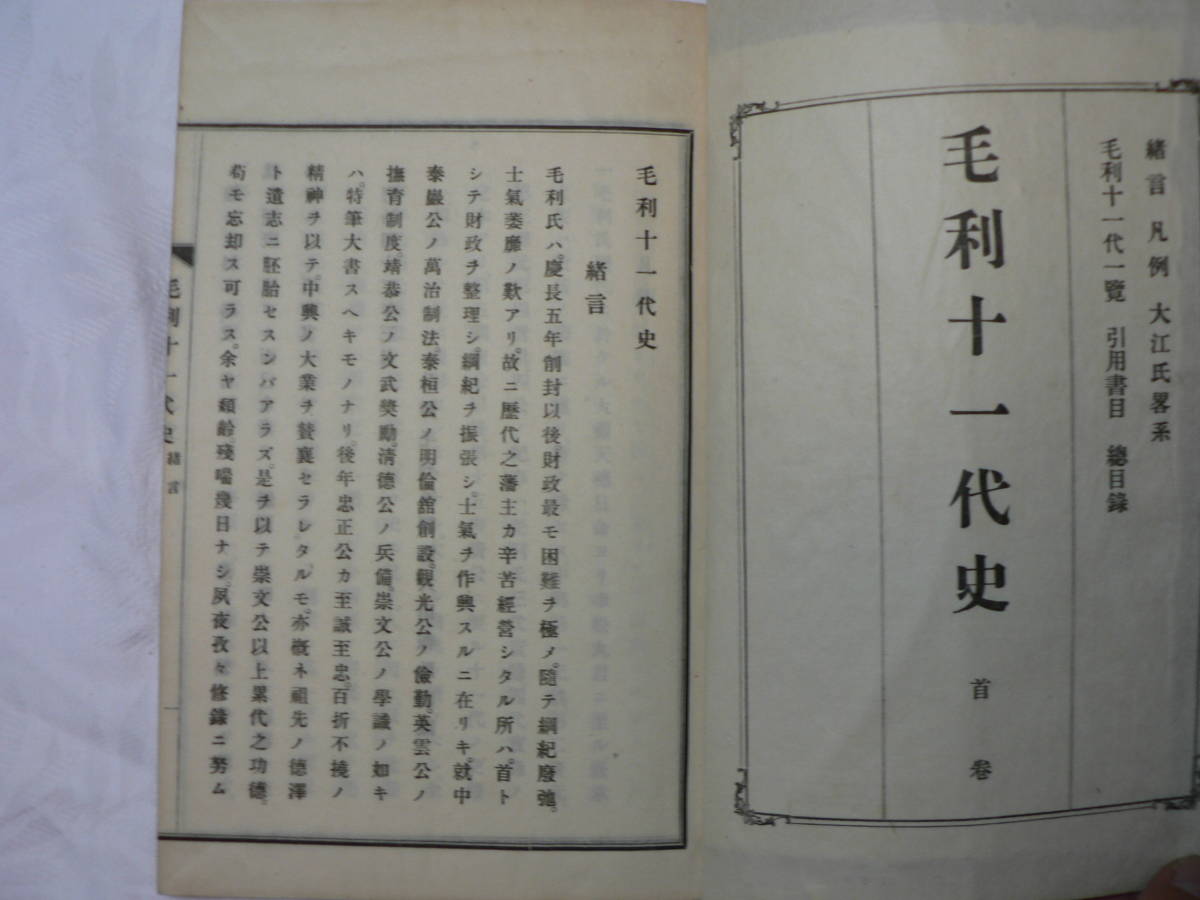 緒言 凡例 大江氏畧系
毛利十一代一覽 引用書目 總目錄
毛利十一代史 首卷
毛利十一代史
緒言
毛利氏ハ。慶長五年削封以後財政最モ困難ヲ極メ。隨テ綱紀廢弛。
士氣萎靡ノ歎アリ。故ニ歷代之藩主カ辛苦經營シタル所ハ。首ト
シテ財政ヲ整理シ。綱紀ヲ振張シ。士氣ヲ作興スルニ在リキ。就中
泰巖公ノ萬治制法。泰桓公ノ明倫舘創設。觀光公ノ儉勤。英雲公ノ
撫育制度。靖恭公ノ文武奬勵。淸德公ノ兵備。崇文公ノ學議ノ如キ
ハ。特筆大書スヘキモノナリ。後年忠正公カ至誠至忠。百折不撓ノ
精神ヲ以テ。中興ノ大業ヲ賛襄セラレタルモ。亦概ネ祖先ノ德澤
ト遺志ニ胚胎セスンバアラズ。是ヲ以テ崇文公以上累代之功德。
苟モ忘却ス可ラス。余ヤ頽齡殘喘幾日ナシ。夙夜孜々修錄ニ努ム
毛利十一代史 緖言